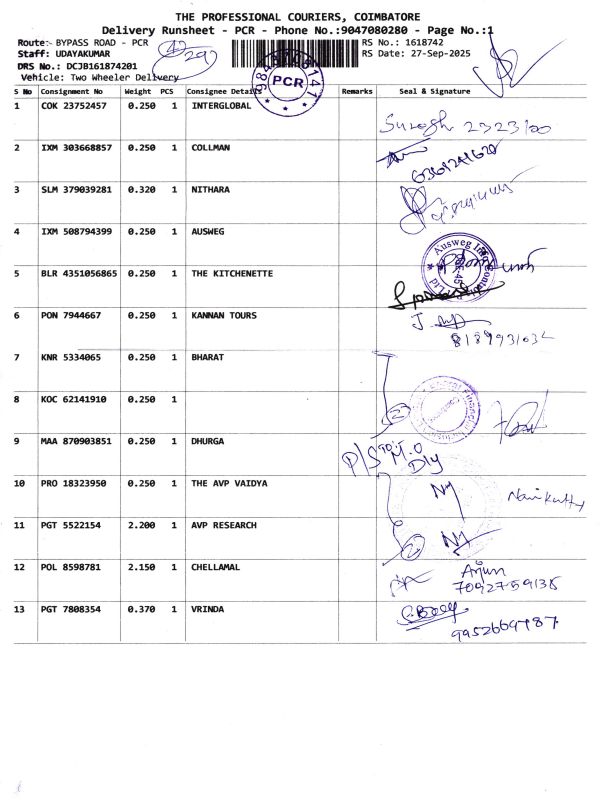 THE PROFESSIONAL COURIERS, COIMBATORE
Delivery Runsheet - PCR - Phone No.:9047080280 - Page No.:1
Route:- BYPASS ROAD - PCR
RS No.: 1618742
Staff: UDAYAKUMAR
RS Date: 27-Sep-2025
DRS No.: DCJB161874201
Vehicle: Two Wheeler Delivery
PCR
S No Consignment No Weight PCS Consignee Details Remarks Seal & Signature
1 COK 23752457 0.250 1 INTERGLOBAL
Suresh
2 IXM 303668857 0.250 1 COLLMAN
3 SLM 379039281 0.320 1 NITHARA
4 IXM 508794399 0.250 1 AUSWEG
Ausweg
5 BLR 4351056865 0.250 1 THE KITCHENETTE
6 PON 7944667 0.250 1 KANNAN TOURS
7 KNR 5334065 0.250 1 BHARAT
8 KOC 62141910 0.250 1
2
9 MAA 870903851 0.250 1 DHURGA
P/S M.O
Dly
10 PRO 18323950 0.250 1 THE AVP VAIDYA
11 PGT 5522154 2.200 1 AVP RESEARCH
2
12 POL 8598781 2.150 1 CHELLAMAL
Arjun
7092759138
13 PGT 7808354 0.370 1 VRINDA
9952669787